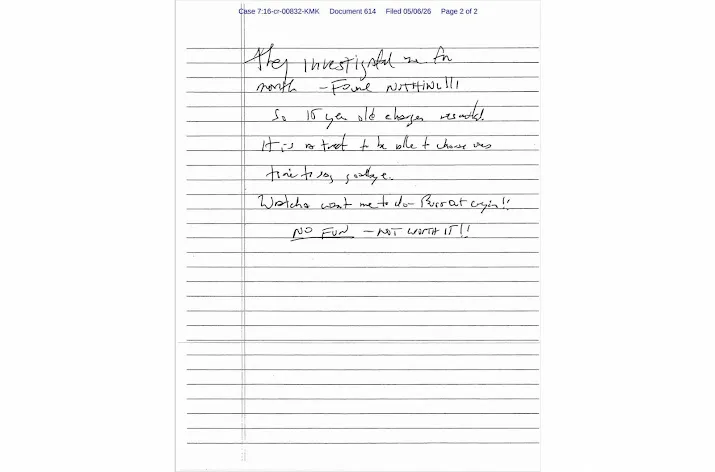 Case 7:16-cr-00832-KMK Document 614 Filed 05/06/26 Page 2 of 2
They investigated me for
month – Found NOTHING!!!
So 15 year old charges
It is a treat to be able to choose
time to say goodbye.
want me to do – Burst out cryin!!
NO FUN – NOT WORTH IT!!